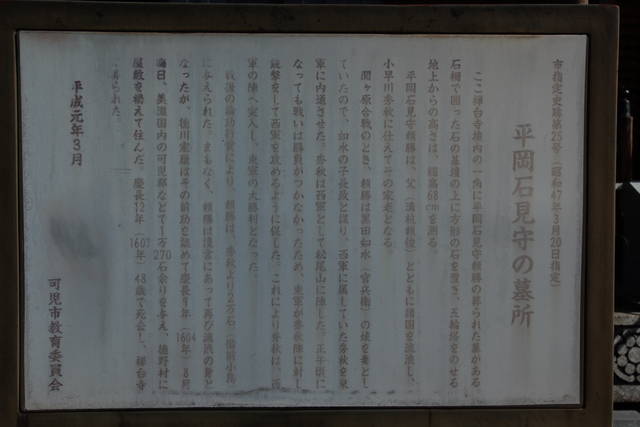 市指定史跡第25号（昭和47年3月20日指定）
平岡石見守の墓所
ここ禅台寺境内の一角に平岡石見守頼勝の葬られた墓がある。
石柵で囲った石の基壇の上に方形の石を置き、五輪塔をのせる
地上からの高さは、総高68cmを測る。
平岡石見守頼勝は、父（頼俊）とともに諸国を流浪し、
小早川秀秋に仕えてその家老となる。
関ヶ原合戦のとき、頼勝は黒田如水（官兵衛）の姪を妻とし
ていたので、如水の子長政と謀り、西軍に属していた秀秋を東
軍に内通させた。秀秋は西軍として松尾山に陣した。正午頃に
なっても戦いは勝負がつかなかったため、東軍が秀秋陣に対し
銃撃をして西軍を攻めるように促した。これにより秀秋は、西
軍の陣へ突入し、東軍の大勝利となった。
戦後の論功行賞により、頼勝は、秀秋より2万石（備前小島
に与えられた。まもなく、頼勝は讒言にあって再び流浪の身と
なったが、徳川家康はその前功を認めて慶長9年（1604年）8月
晦日、美濃国内の可児郡などで1万270石余りを与え、徳野村に
屋敷を構えて住んだ。慶長12年（1607年）48歳で死去し、禅台寺
に葬られた。
平成元年3月
可児市教育委員会